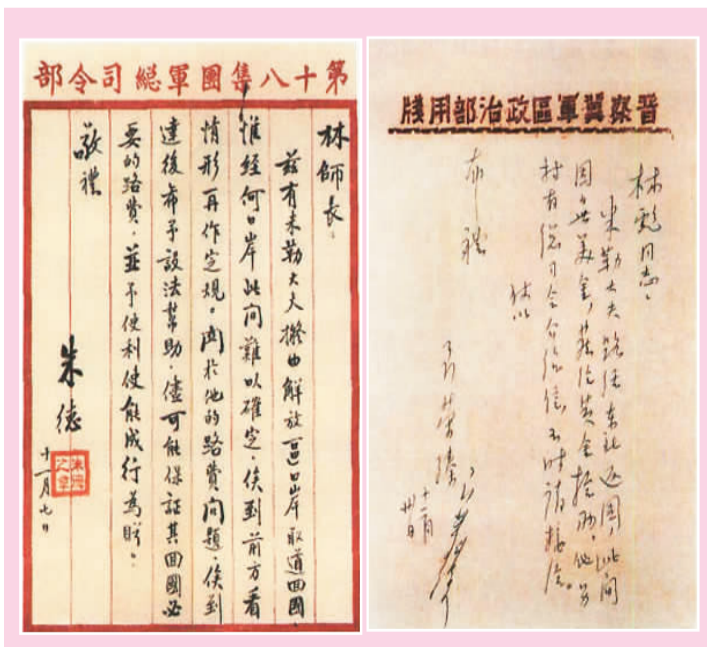 第十八集團軍総司令部
林師長：
茲有米勒大夫擬由解放區口岸取道回國，
惟經何口岸此間難以確定。俟到前方看
情形再作定規。関於他的路費问題，俟到
達後希予設法幫助，儘可能保証其回國必
要的路費，並予便利使能成行為盼。
敬禮
朱德
十一月七日
朱德之章
晋察冀軍區政治部用牋
林彪同志：
米勒大夫路经东北返国，此间
因無美金，黄金
持有总司令介绍信，请接洽。
布礼
聂荣臻
十一月
廿日